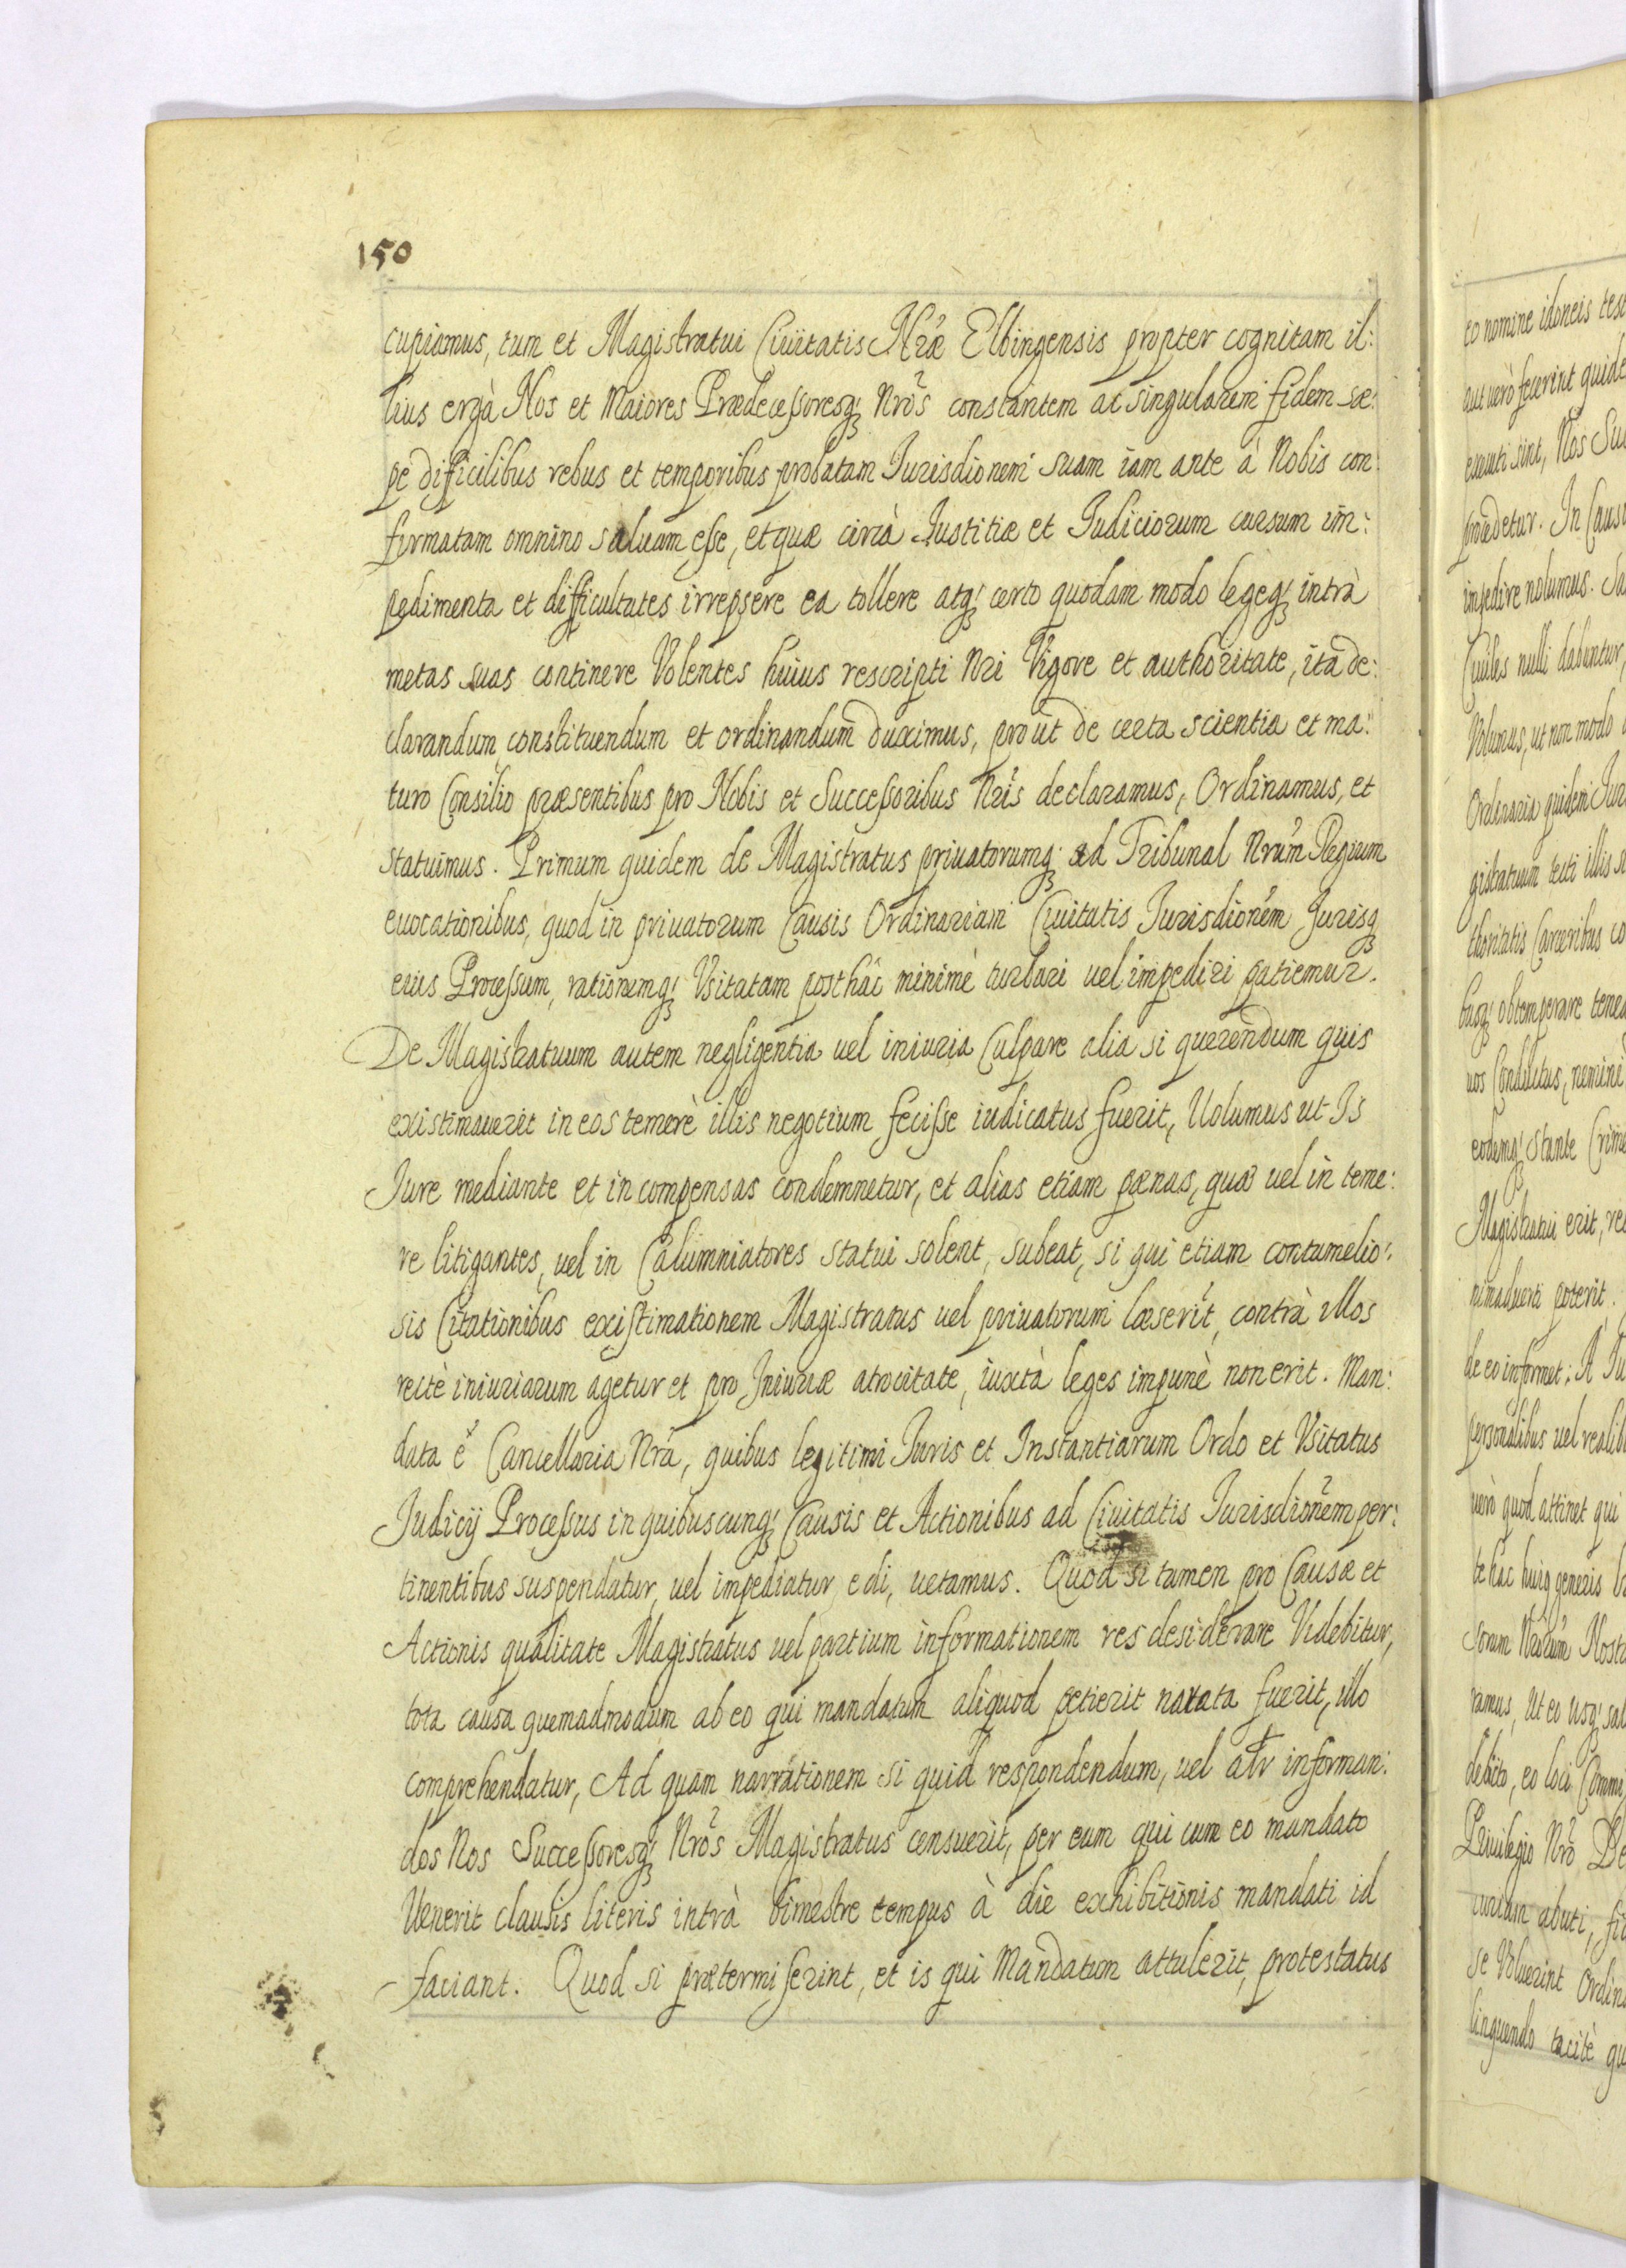 150
cupiamus, tum et Magistratui Ciuitatis Nræ Elbingensis propter cognitam il:
lius ergà Nos et Maiores Prædecessoresq; Nrōs constantem ac singularem fidem sæ:
pe difficilibus rebus et temporibus probatam Jurisdionem suam iam ante à Nobis con:
firmatam omnino saluam esse, et quæ circà Justitiæ et Judiciorum cursum im:
pedimenta et difficultates irrepsere ea tollere atq; certo quodam modo legeq; intrà
metas suas continere Volentes huius rescripti Nri Vigore et authoritate, ita de:
clarandum, constituendum et ordinandum duximus, proùt de certa scientia et ma:
turo Consilio præsentibus pro Nobis et Successoribus Nrīs declaramus, Ordinamus, et
statuimus. Primum quidem de Magistratus priuatorumq; ad Tribunal Nrum Regium
euocationibus, quod in priuatorum Causis Ordinariam Ciuitatis Jurisdionēm Jurisq
eius Processum, rationemq; Vsitatam posthàc minimè turbari uel impediri patiemur.
De Magistratuum autem negligentia uel iniuria Culpare alia si querendum quis
existimauerit in eos temerè illis negotium fecisse iudicatus fuerit, Uolumus ut Is
Jure mediante et in compensas condemnetur, et alias etiam pœnas, quæ uel in teme:
re litigantes, uel in Calumniatores statui solent, subeat, si qui etiam contumelio:
sis Citationibus existimationem Magistratus uel priuatorum læserīt, contrà illos
rectè iniuriarum agetur et pro Iniuriæ atrocitate, iuxtà leges impunè non erit. Man:
data è Cancellaria Nrā, quibus legitimi Juris et Instantiarum Ordo et Vsitatus
Judicij Processus in quibuscunq; Causis et Actionibus ad Ciuitatis Jurisdionēm per:
tinentibus suspendatur, uel impediatur, edi, uetamus. Quod si tamen pro Causæ et
Actionis qualitate Magistratus uel partium informationem res desiderare Videbitur,
tota causa quemadmodum ab eo qui mandatum aliquod petierit narata fuerit, illo
comprehendatur, Ad quam narrationem si quid respondendum, uel alr informan:
dos Nos Successoresq; Nrōs Magistratus censuerit, per eum qui cum eo mandato
Uenerit clausis literis intrà bimestre tempus à die exhibitionis mandati id
faciant. Quod si prætermiserint, et is qui Mandatum attulerit, protestatus
eo nomine idoneis
aut uerò fecerint
sint, Nos
In
impedire nolumus.
Ciuiles nulli dabuntur,
Volumus, ut non modo
Ordinaria quidem
gistratuum
thoritatis Carceribus
busq; obtemperare
nemini
eodemq; stante
Magistratui erit,
nimaduerti poterit.
de eo informet: A
personalibus uel
uerò quod attinet qui
te hac
sorum Nrorum
ramus, Ut eo usq;
debito, eo loci
Priuilegio Nrō
abuti,
se Voluerint
linquendo tacitè